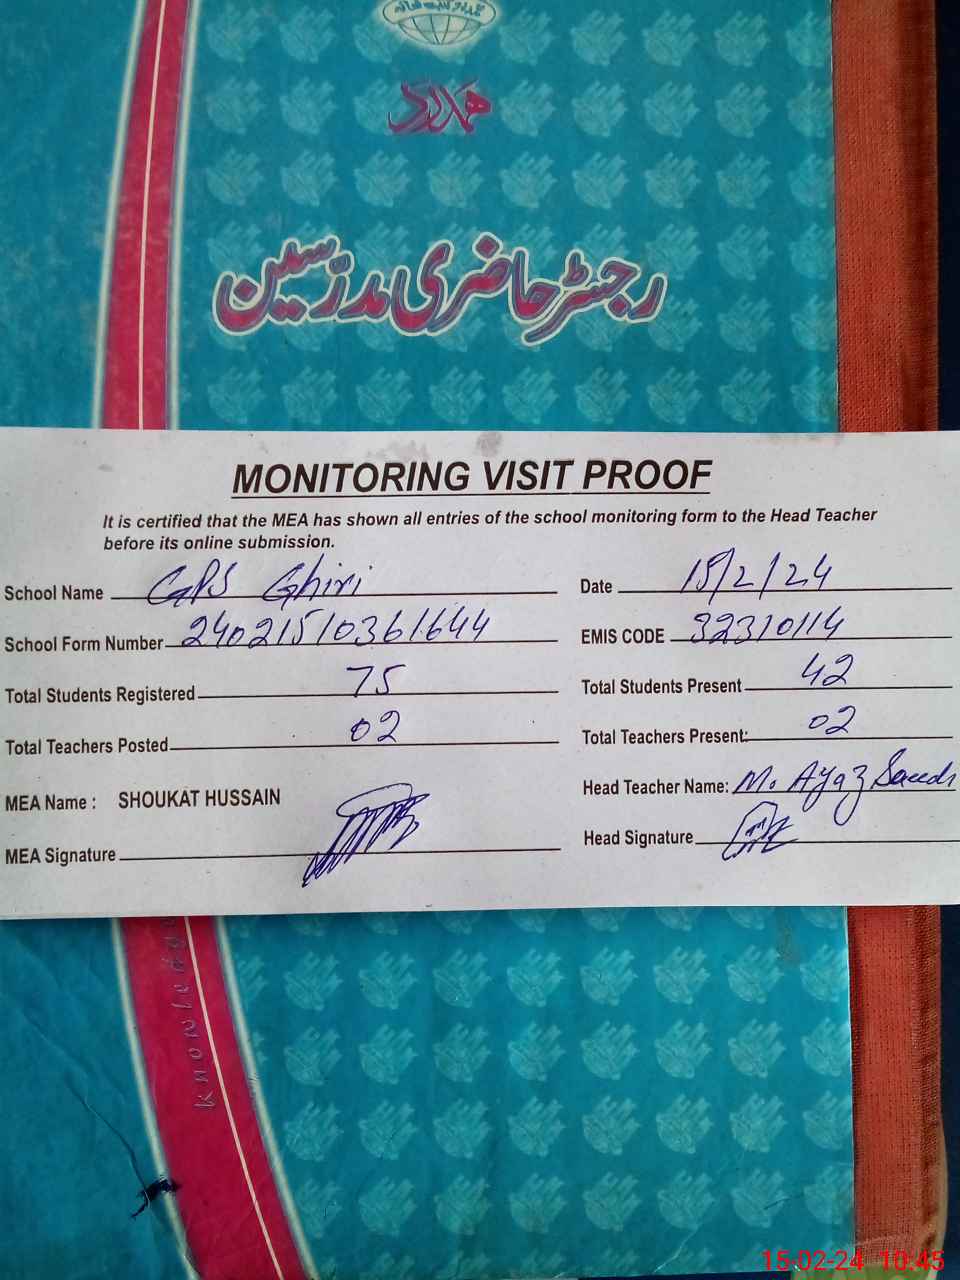 ہمدرد
رجسٹر حاضری مدرّسین
MONITORING VISIT PROOF
It is certified that the MEA has shown all entries of the school monitoring form to the Head Teacher
before its online submission.
School Name GPS Ghiri Date 15/2/24
School Form Number 24021510361644 EMIS CODE 32310114
Total Students Registered 75 Total Students Present 42
Total Teachers Posted 02 Total Teachers Present: 02
MEA Name : SHOUKAT HUSSAIN Head Teacher Name: M. Ayaz Saeed
MEA Signature Head Signature
Knowledge
15-02-24 10:45